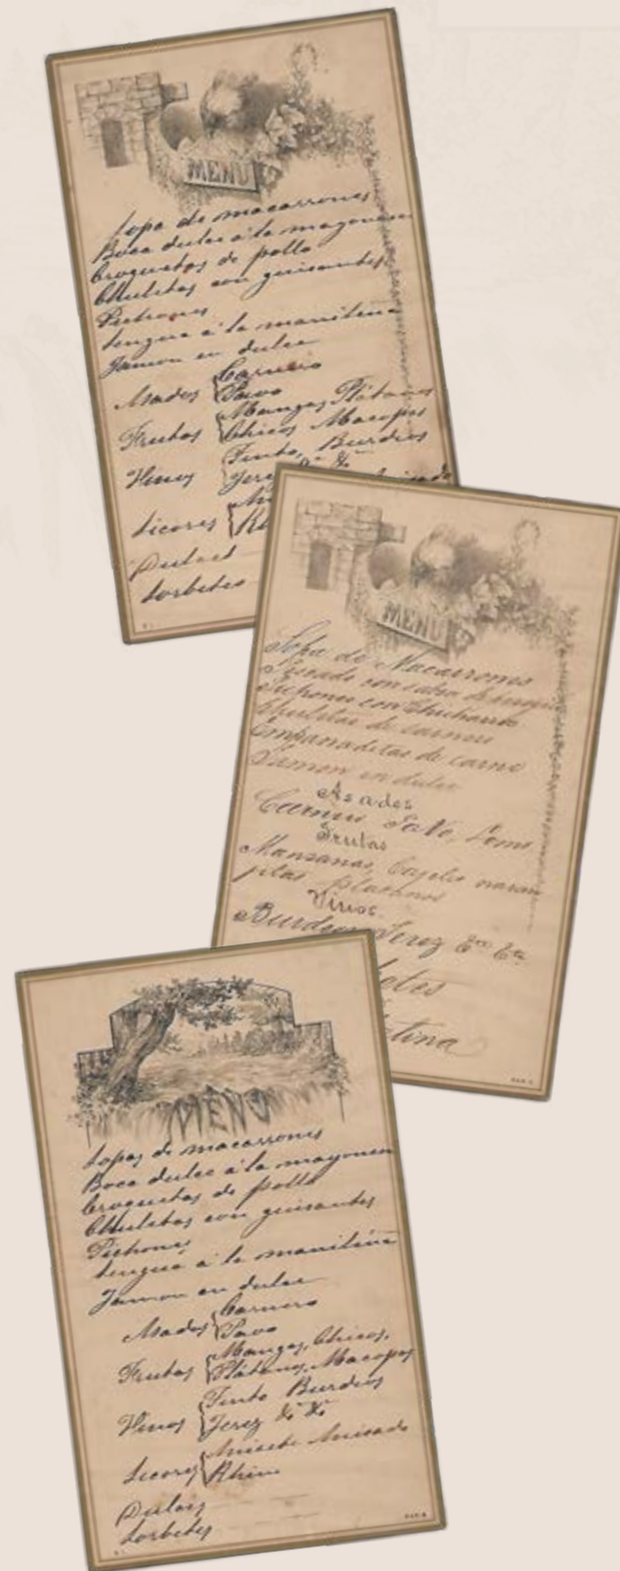 MENU
Sopa de macarrones
Boca dulce à la mayonesa
Croquetas de pollo
Chuletas con guisantes
Pichones
Lengua à la manileña
Jamon en dulce
Asados Carnero
Pavo
Frutas Mangas, Plátanos
Chicos Macopas
Vinos Tinto, Burdeos
Jerez
Licores
Dulces
Sorbetes
MENU
Sopa de Macarrones
Pescado con salsa de
Pichones con Chicharos
Chuletas de carnero
Empanaditas de carne
Jamon en dulce
Asados
Carnero Pavo, Lomo
Frutas
Manzanas, naran
jitas platanos
Vinos
Burdeos Jerez Etc Etc
MENU
Sopas de macarrones
Boca dulce à la mayonesa
Croquetas de pollo
Chuletas con guisantes
Pichones
Lengua à la manileña
Jamon en dulce
Asados Carnero
Pavo
Frutas Mangas, Chicos,
Plátanos, Macopas
Vinos Tinto Burdeos
Jerez & &
Licores Anisete Anisado
Rhin
Dulces
Sorbetes